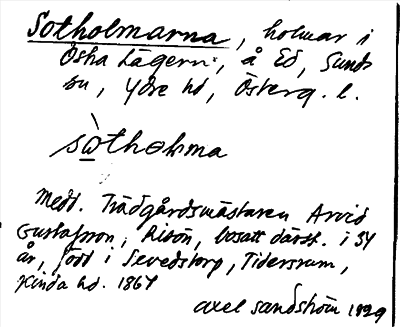 Sotholmarna, holmar i
Östra Lägern, å Ed, Sunds
sn, Ydre hd, Österg. l.
sòthɵlma
Medd. Trädgårdsmästaren Arvid
Gustafsson, Risön, bosatt därst. i 54
år, född i Sevedstorp, Tidersrum,
Kinda hd. 1867
Axel Sandström 1929